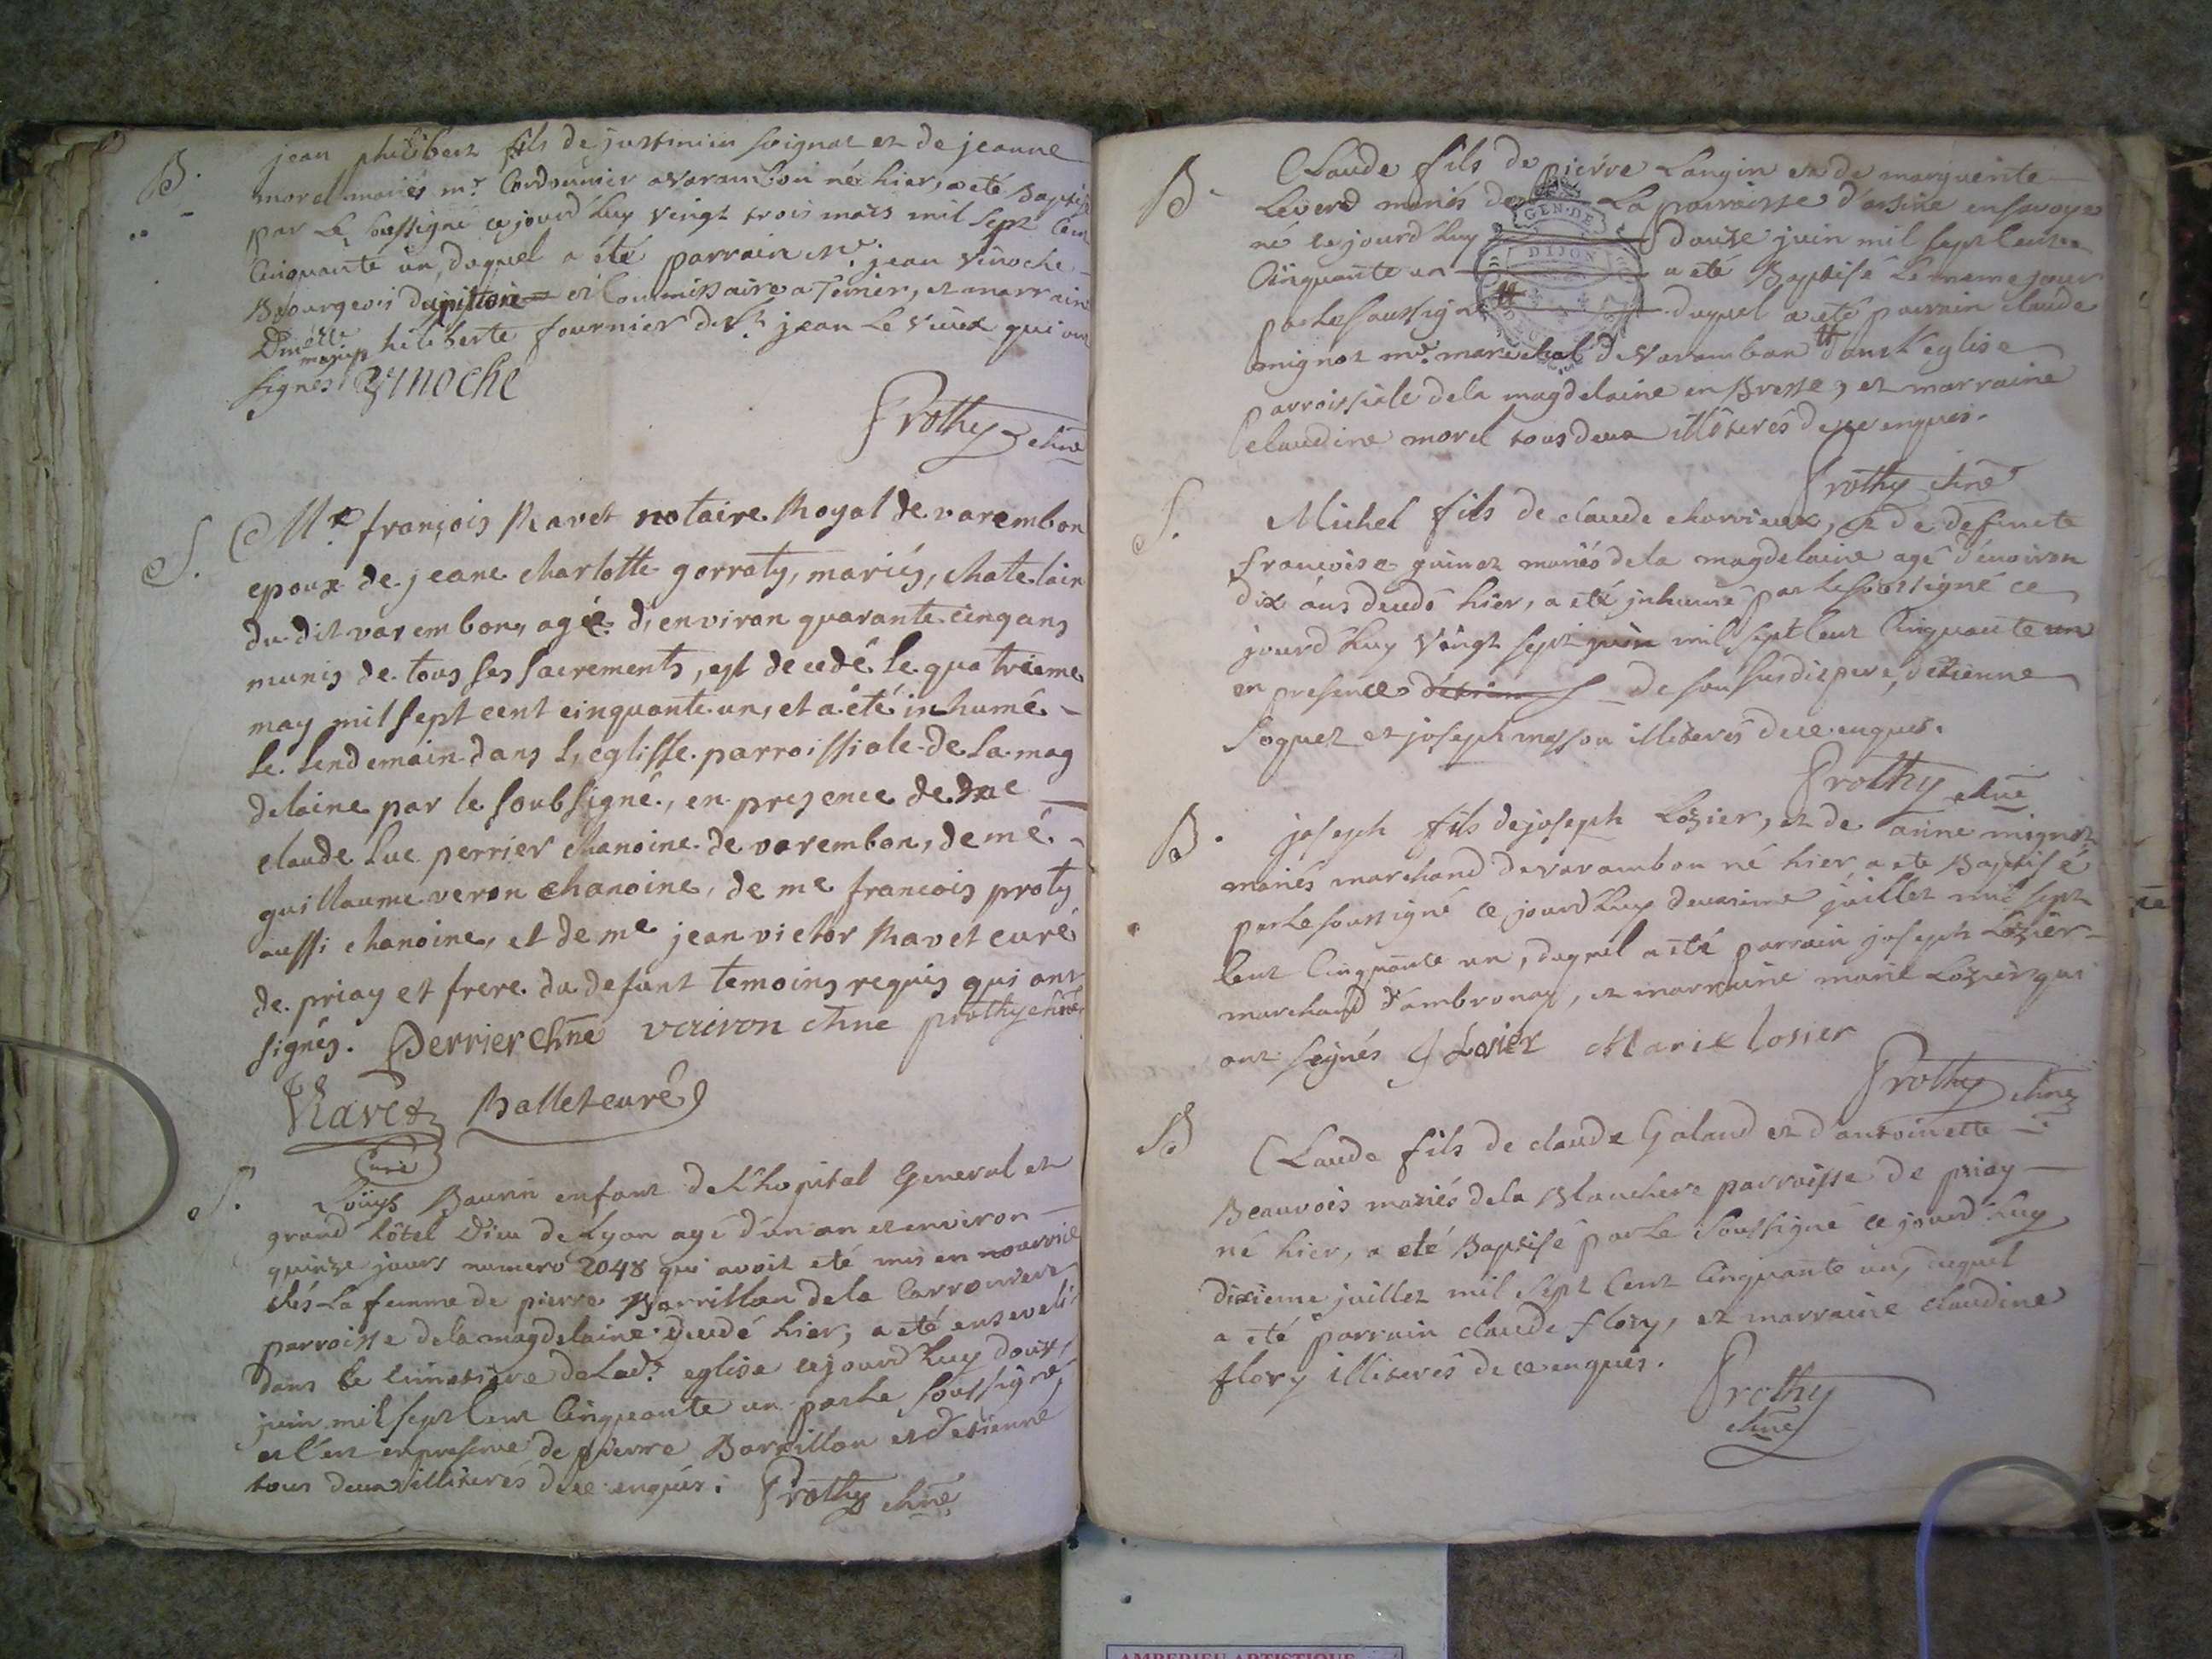 B. jean philibert fils de justinien soignat et de jeanne
morel mariés mr. Cordonnier a varambon né hier, a eté Baptisé
par Le soussigné ce jourd'huy vingt trois mars mil sept Cent
Cinquante un, duquel a été parrain sr. jean vinoche
Bourgeois et Commissaire a, et marraine
Dmelle fournier de sr. jean Le vieux qui ont
signés. vinoche
Prothy chne
S. Me. françois Ravet notaire Royal de varembon
epoux de jeane charlotte gorraty, mariés, chatelain
du dit varembon, agé d'environ quarante cinq ans
munis de tous ses sacrements, est decedé le quatrieme
may mil sept cent cinquante un, et a été inhumé
le lendemain dans l'eglisse parroissiale de la mag
delaine par le soubsigné, en presence de me
claude luc perrier chanoine de varembon, de me
guillaume veron chanoine, de me francois proty
aussi chanoine, et de me jean victor Ravet curé
de priay et frere du defunt temoins requis qui ont
signés. Perrier chne vairon chne prothy chne
Ravet Ballet curé
Curé
S. Loüys Baurin enfant de L'hopital General et
grand hôtel Dieu de Lyon agé d'un an et environ
quinze jours numero 2048 qui avoit eté mis en nourrice
chés La femme de pierre Barrillon de la Carronniere
parroisse de la magdelaine decedé hier, a eté enseveli
dans le cimetiere de Lad. eglise ce jourd'huy douse
juin mil sept Cent Cinquante un par Le soussigné,
et c'est en presence de pierre Barrillon et d'etienne
tous deux illiterés de ce enquis. Prothy chne
B. CLaude fils de pierre Langin et de marguerite
Leverd mariés de La parroisse d'arsine en savoye
né ce jourd'huy douse juin mil sept Cent
Cinquante un a eté Baptisé Le meme jour
par Le soussigné # duquel a eté parrain claude
mignot mr. marechal de varambon # dans L'eglise
parroissiale de la magdelaine en Bresse, et marraine
claudine morel tous deux illiterés de ce enquis.
Prothy chne
S. Michel fils de claude chorvieux, et de defuncte
francoise guinet mariés de la magdelaine agé d'environ
dix ans decedé hier, a eté inhumé par Le soussigné ce
jourd'huy vingt sept juin mil sept Cent Cinquante un
en presence de son susdit pere, d'etienne
soquet et joseph masson illiterés de ce enquis.
Prothy chne
B. joseph fils de joseph Lozier, et de anne mignot
mariés marchand de varambon né hier, a eté Baptisé
par Le soussigné ce jourd'huy deuxieme juillet mil sept
Cent Cinquante un, duquel a eté parrain joseph Lozier
marchand d'ambronay, et marraine marie Lozier qui
ont signés J Losier Marie losier
Prothy chne
B CLaude fils de claude Galand et d'antoinette
Beauvois mariés de la Blanchere parroisse de priay
né hier, a eté Baptisé par Le soussigné ce jourd'huy
dixieme juillet mil sept Cent Cinquante un, duquel
a eté parrain claude flory, et marraine claudine
flory illiterés de ce enquis.
Prothy
chne
GEN. DE
DIJON
AMBERIEU ARTISTIQUE